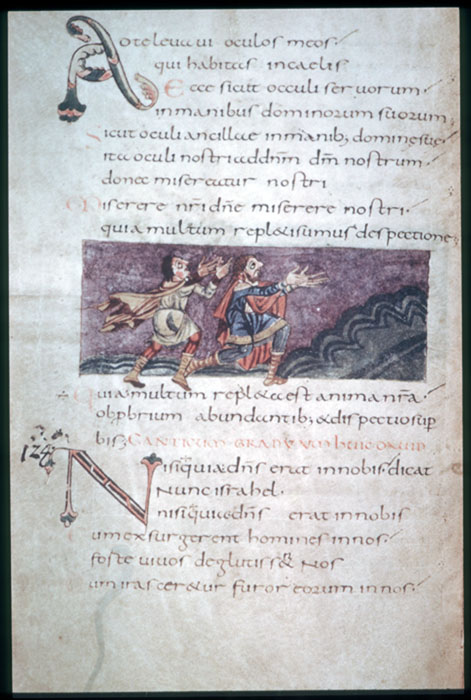 Ad te leuaui oculos meos
qui habitas in caelis
Ecce sicut occuli seruorum
in manibus dominorum suorum
Sicut oculi ancillae in manib; domine suae
ita oculi nostri addnm dm nostrum
donec misereatur nostri
Miserere nri dne miserere nostri
quia multum repl&isumus despectione
Quia multum repl&a est anima nra
obprbrium abundantib; & dispectio sup
bis; CANTICUM GRADUUM HUIC DAUID
128
Nisi quia dns erat in nobis dicat
Nunc israhel
nisi quia dns erat in nobis
cum exsurgerent homines in nos
forte uiuos deglutiss& Nos
cum irascer&ur furor eorum in nos